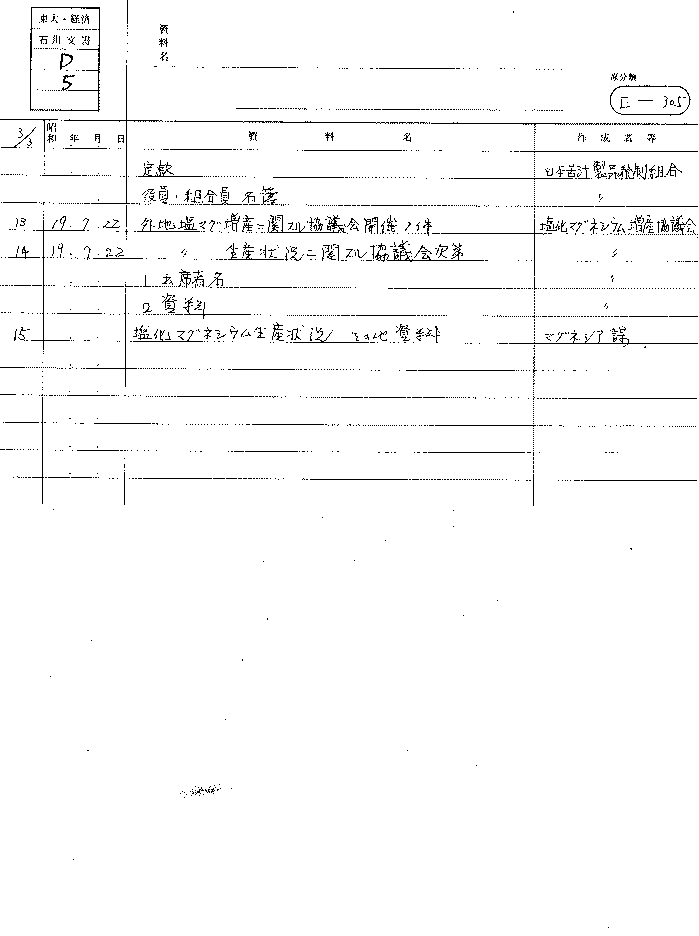 東大・経済
石川文書
D
5
資料名
原分類
E — 305
3/3 昭和 年 月 日 資料名 作成者等
定款 日本苦汁製品統制組合
役員・組合員名簿 〃
13 19.7.22 外地塩マグ増産ニ関スル協議会開催ノ件 塩化マグネシウム増産協議会
14 19.7.22 〃 生産状況ニ関スル協議会次第 〃
1 出席者名 〃
2 資料 〃
15 塩化マグネシウム生産状況 その他資料 マグネシア課